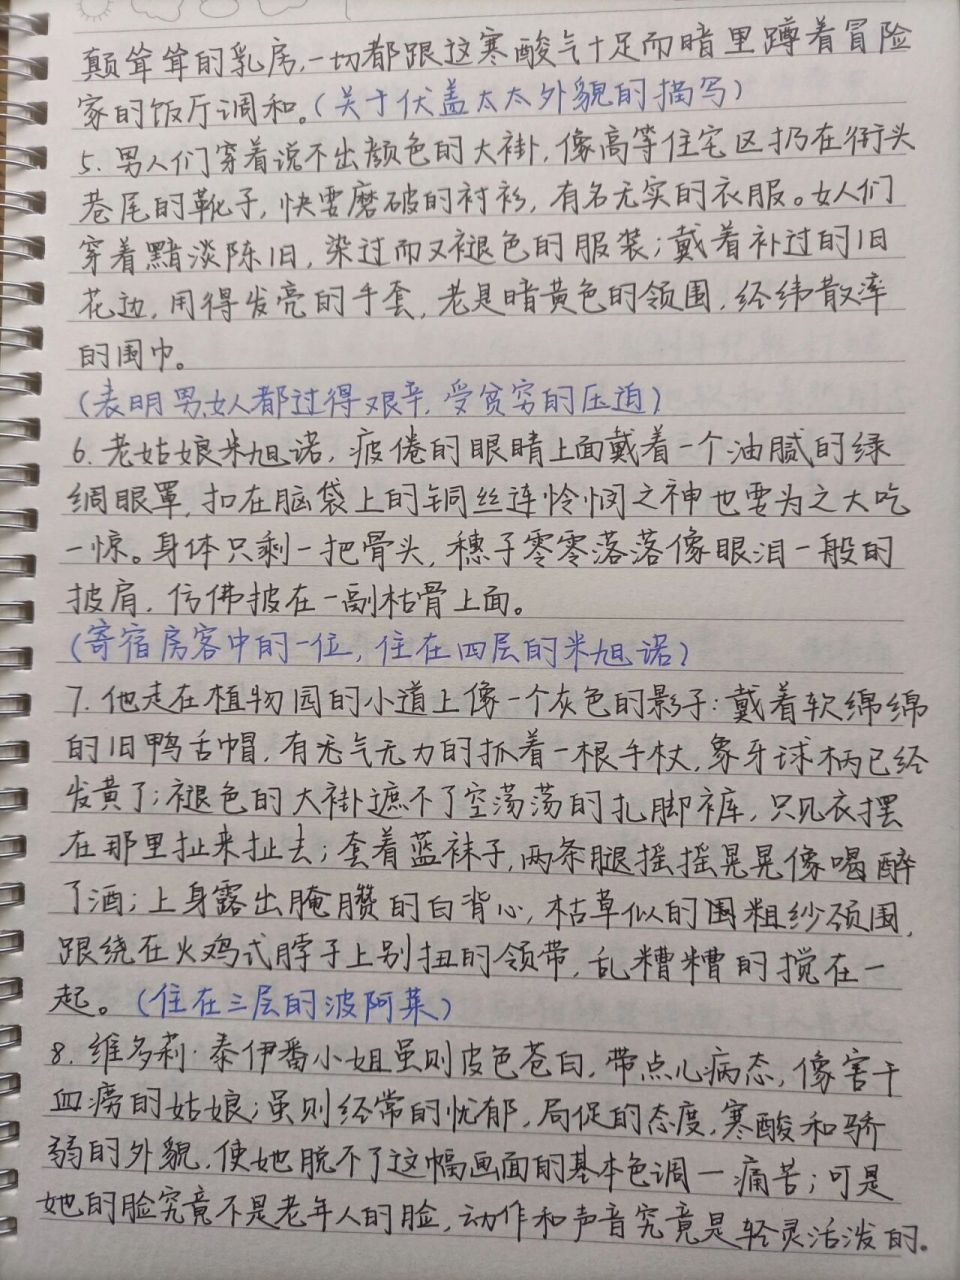 颠耸耸的乳房,一切都跟这寒酸气十足而暗里蹲着冒险
家的饭厅调和。(关于伏盖太太外貌的描写)
5. 男人们穿着说不出颜色的大褂,像高等住宅区扔在街头
巷尾的靴子,快要磨破的衬衫,有名无实的衣服。女人们
穿着黯淡陈旧,染过而又褪色的服装;戴着补过的旧
花边,用得发亮的手套,老是暗黄色的领围,经纬散率
的围巾。
(表明男女人都过得艰辛,受贫穷的压迫)
6. 老姑娘米旭诺,疲倦的眼睛上面戴着一个油腻的绿
绸眼罩,扣在脑袋上的铜丝连怜悯之神也要为之大吃
一惊。身体只剩一把骨头,穗子零零落落像眼泪一般的
披肩,仿佛披在一副枯骨上面。
(寄宿房客中的一位,住在四层的米旭诺)
7. 他走在植物园的小道上像一个灰色的影子:戴着软绵绵
的旧鸭舌帽,有气无力的抓着一根手杖,象牙球柄已经
发黄了;褪色的大褂遮不了空荡荡的扎脚裤,只见衣摆
在那里扯来扯去;套着蓝袜子,两条腿摇摇晃晃像喝醉
了酒;上身露出腌臜的白背心,枯草似的围粗纱颈围,
跟绕在火鸡式脖子上别扭的领带,乱糟糟的搅在一
起。(住在三层的波阿莱)
8. 维多莉·泰伊番小姐虽则皮色苍白,带点心病态,像害干
血痨的姑娘;虽则经常的忧郁,局促的态度,寒酸和骄
弱的外貌,使她脱不了这幅画面的基本色调一痛苦;可是
她的脸究竟不是老年人的脸,动作和声音究竟是轻灵活泼的.